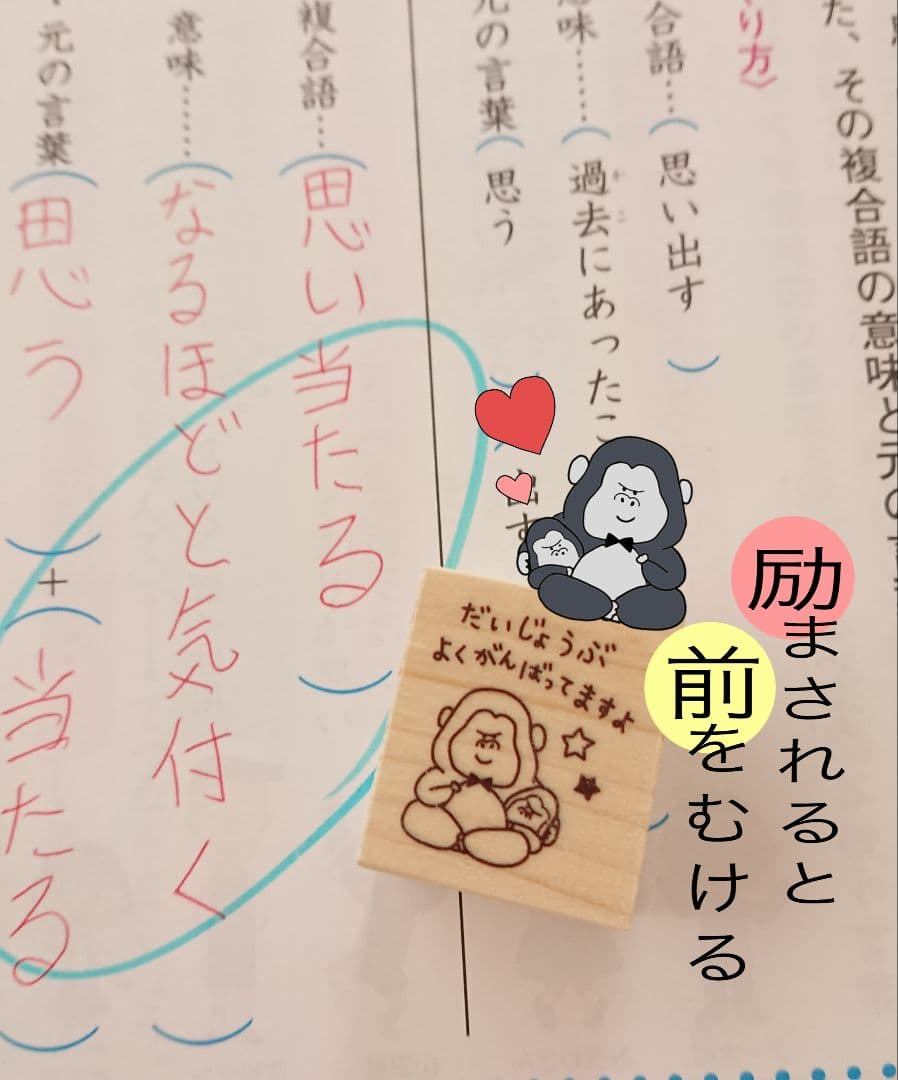 た、その複合語の意味と元の言
り方〉
合語…(思い出す)
意味……(過去にあったこ
元の言葉(思う
出す
複合語…(思い当たる)
意味……(なるほどと気付く)
・元の言葉(思う)+(当たる)
だいじょうぶ
よくがんばってますよ
励まされると
前をむける